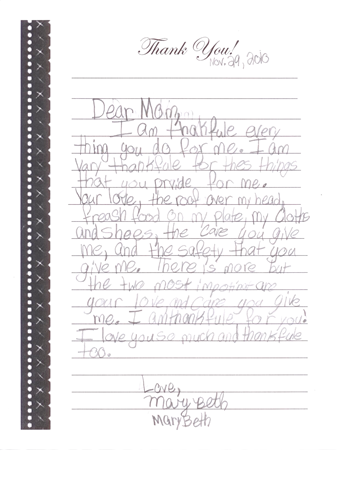 Thank You!
Nov. 29, 2010
Dear Mom,
I am thakfule every
thing you do for me. I am
vary thankfule for thes things
that you prvide for me.
Your love, the roof over my head,
freash food on my plate, my cloths
and shoes, the care you give
me, and the safety that you
give me. There is more but
the two most importnt are
your love and care you give
me. I am thankfule for you!
I love you so much and thankfule
too.
Love,
Mary Beth
Mary Beth